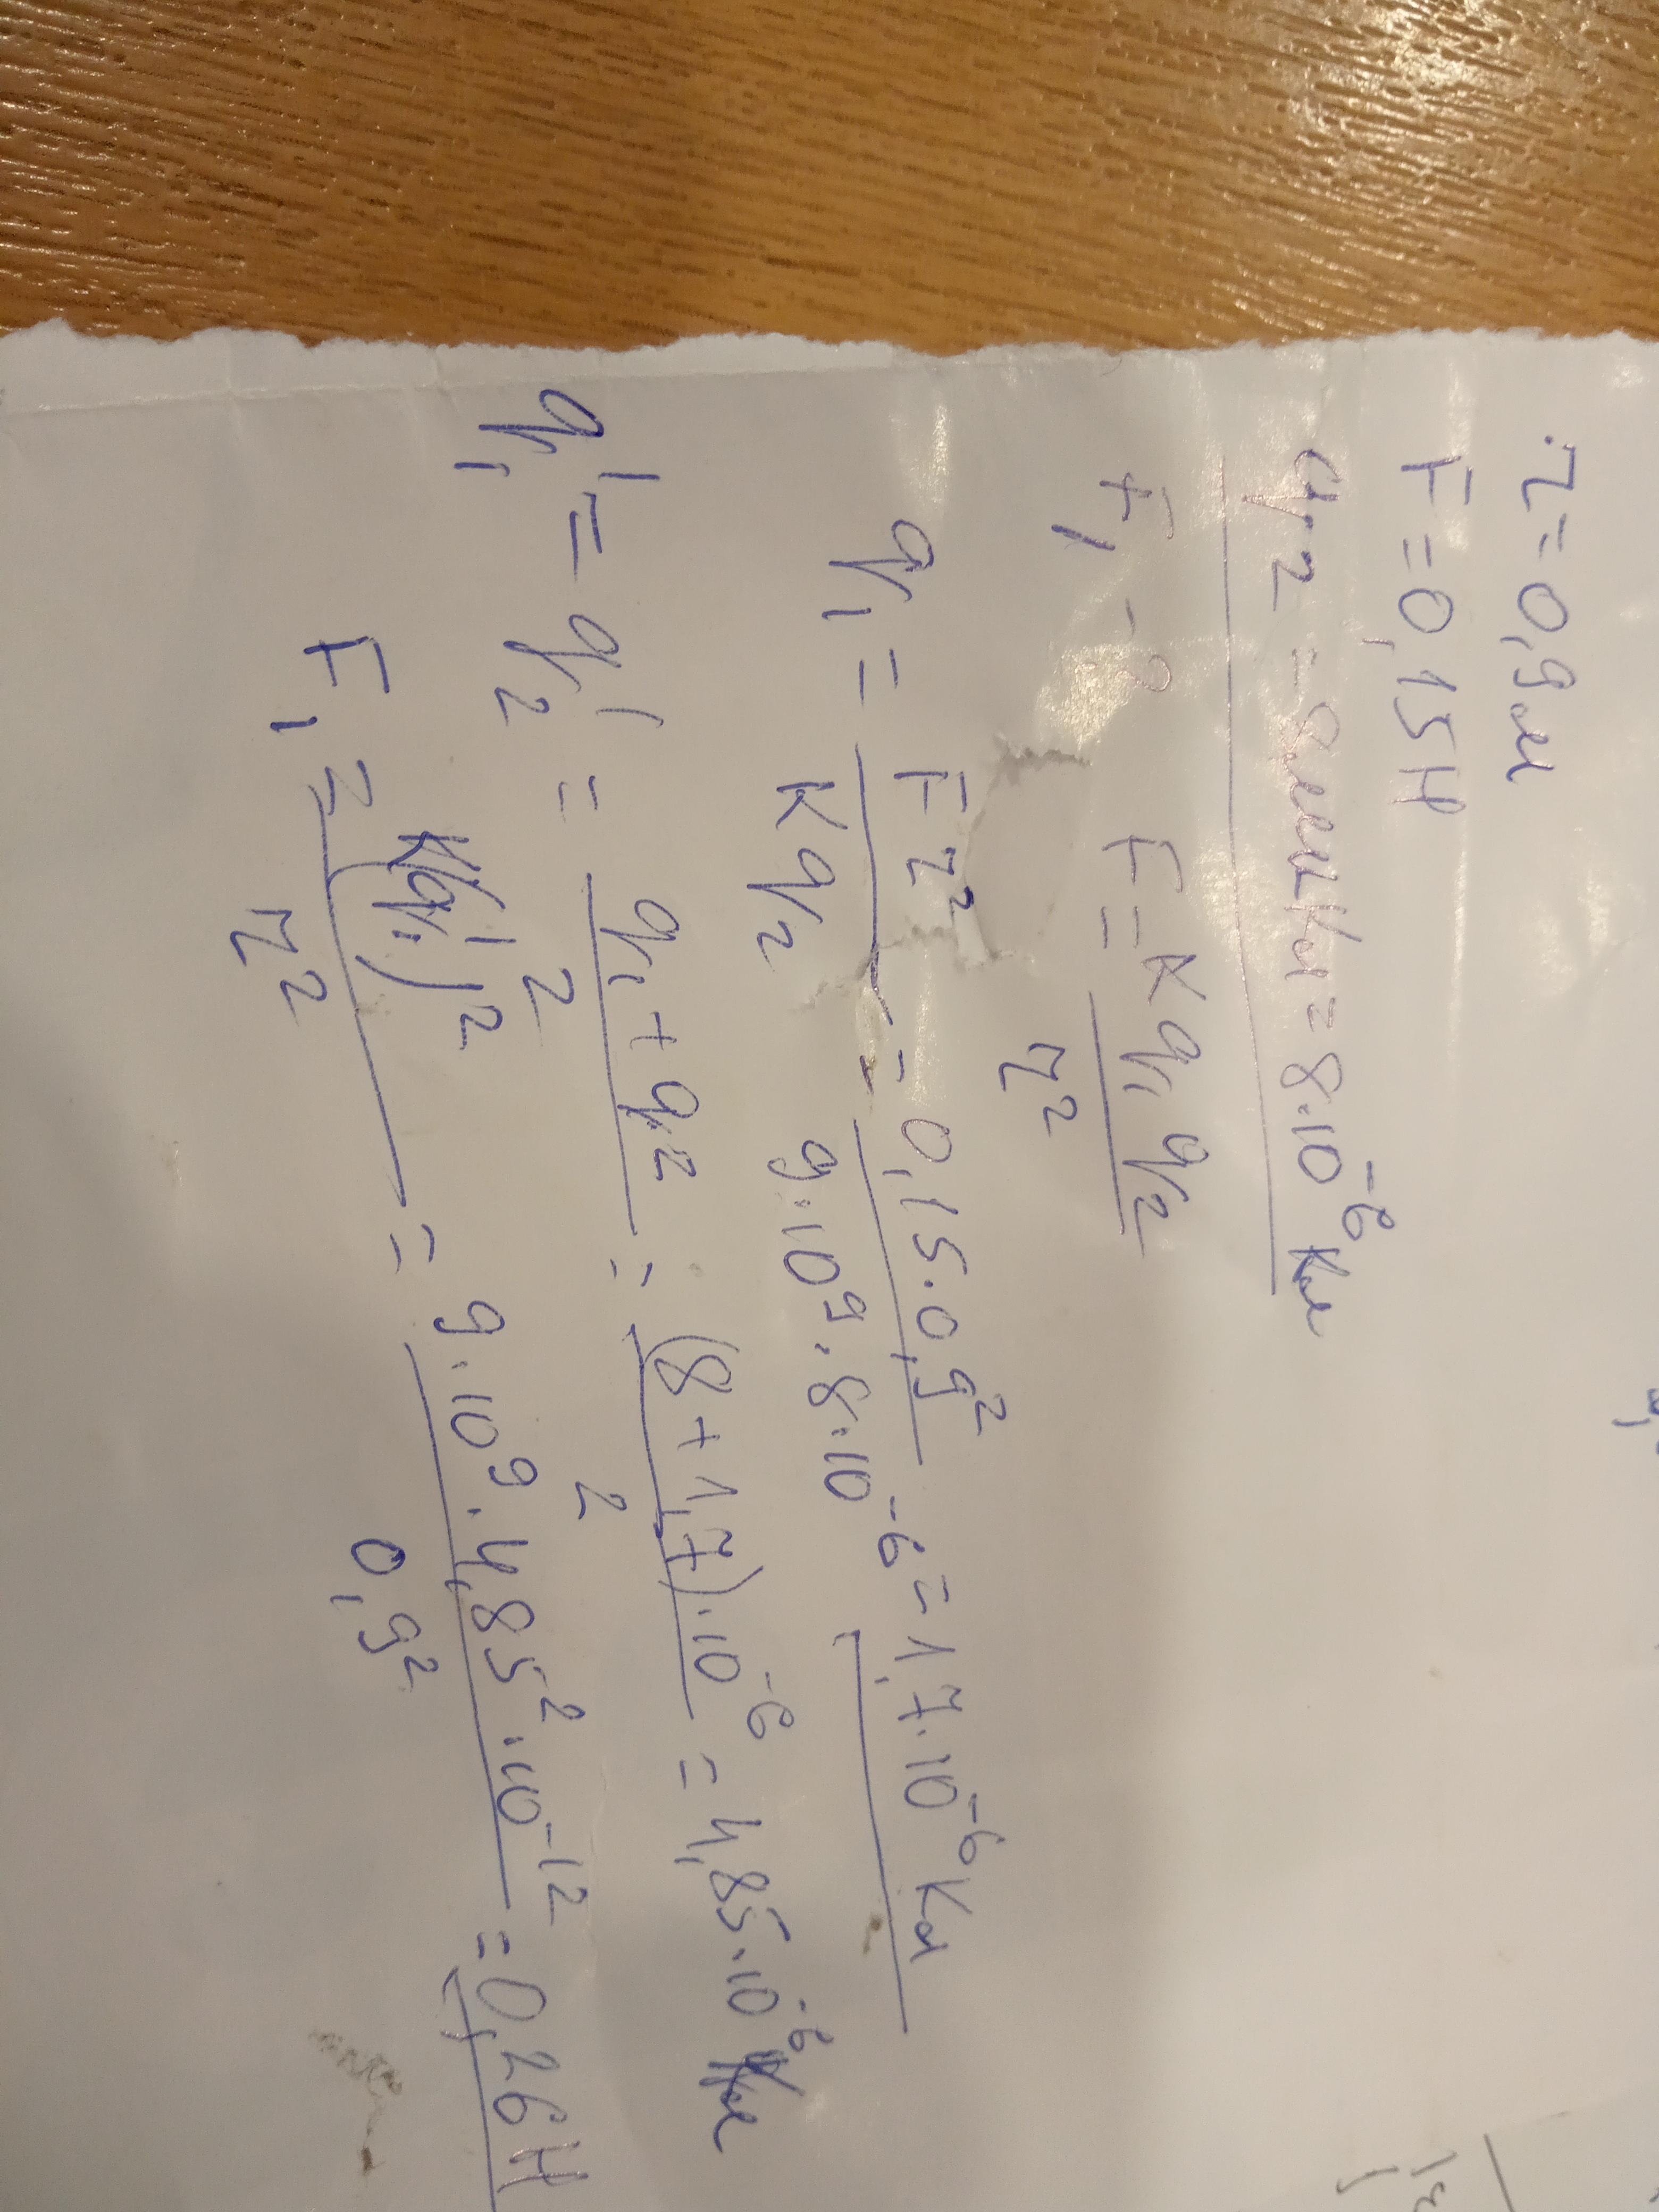 r = 0,9 м
F = 0,15 Н
q2 = 8 мкКл = 8·10^-6 Кл
F1 - ?
F = K q1 q2 / r²
q1 = F r² / K q2 = 0,15·0,9² / 9·10⁹·8·10^-6 = 1,7·10^-6 Кл
q1' = q2' = q1 + q2 / 2 = (8 + 1,7)·10^-6 / 2 = 4,85·10^-6 Кл
F1 = K(q1')² / r² = 9·10⁹·4,85²·10^-12 / 0,9² = 0,26 Н